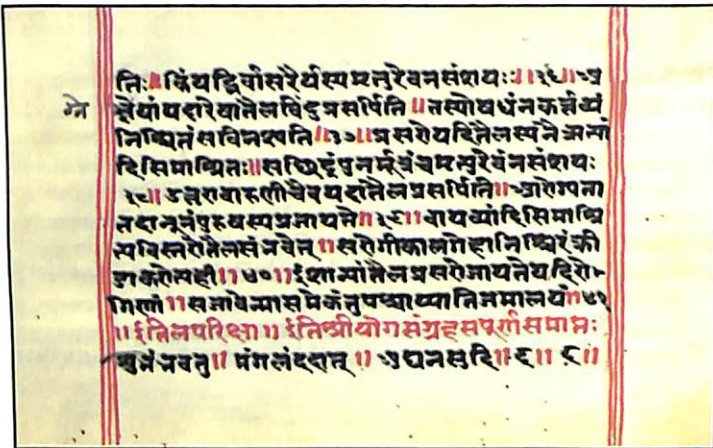 तिः॥कियद्विर्वासरैर्यस्यमृतुरेवनसंशयः॥।३६॥आग्
ने क्षेयांयदारेयातैलविंदुप्रसर्पिति॥तस्योषधंनकर्त्तव्यं
निश्चितंसविनश्यति॥३७॥प्रसरोयदितैलस्यनैऋत्यां
दिसिमाश्रितः॥सछिद्रंपुनर्मूत्रंचमृत्युरेवंनसंशयः
३८॥उत्तरावारुणीचैवयदातैलप्रसर्पिति॥आरोग्यता
तदानूनंपुरुषस्यप्रजायते॥३९॥वायव्यांदिसिमाश्रि
त्यविस्तरोतैलसंभवेत्॥सरोगीकालगेहानिश्चिरंक्री
डाकरोत्यही॥४०॥ईशान्यांतैलप्रसरोजायतेयदिरो-
गिणां॥सजीवेन्मासमेकंतुपश्चाद्यातिजमालयं॥४१
॥ईतिलपरिक्षा॥ईतिश्रीयोगसंग्रहसपूर्णसमाप्तः
शुभंभवतु॥मंगलंददात्॥अघनसुदि॥९॥९॥